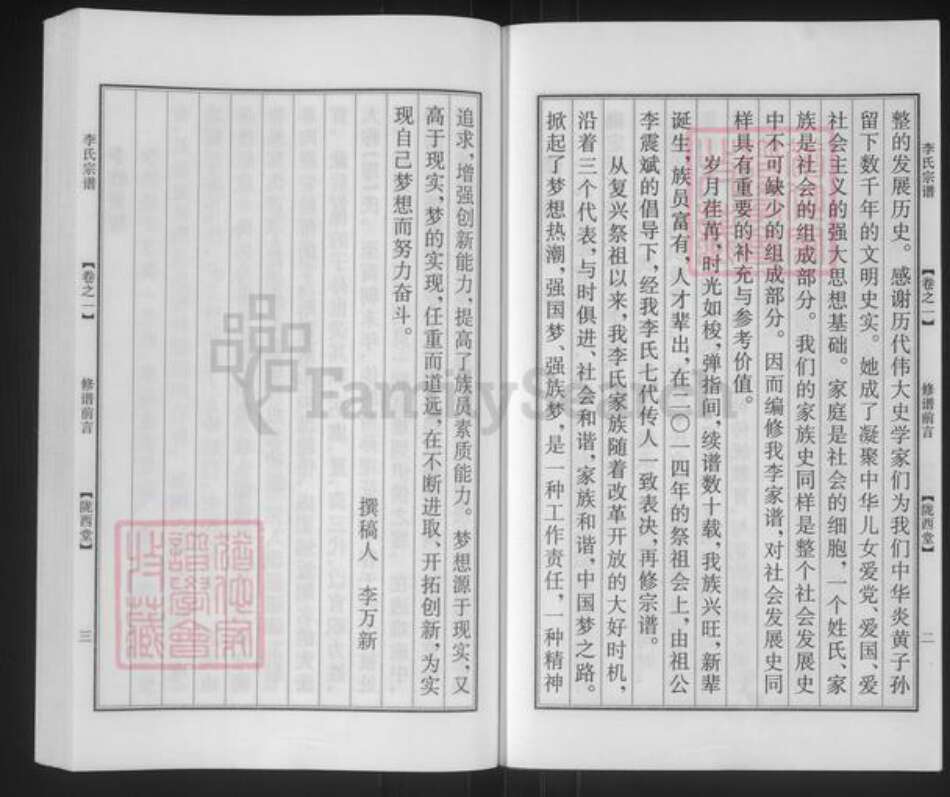 李氏宗谱 【卷之一】 修谱前言 【陇西堂】 二
整的发展历史。感谢历代伟大史学家们为我们中华炎黄子孙
留下数千年的文明史实。她成了凝聚中华儿女爱党、爱国、爱
社会主义的强大思想基础。家庭是社会的细胞,一个姓氏、家
族是社会的组成部分。我们的家族史同样是整个社会发展史
中不可缺少的组成部分。因而编修我李家谱,对社会发展史同
样具有重要的补充与参考价值。
岁月荏苒,时光如梭,弹指间,续谱数十载,我族兴旺,新辈
诞生,族员富有,人才辈出,在二〇一四年的祭祖会上,由祖公
李震斌的倡导下,经我李氏七代传人一致表决,再修宗谱。
从复兴祭祖以来,我李氏家族随着改革开放的大好时机,
沿着三个代表,与时俱进、社会和谐,家族和谐,中国梦之路。
掀起了梦想热潮,强国梦、强族梦,是一种工作责任,一种精神
追求,增强创新能力,提高了族员素质能力。梦想源于现实,又
高于现实,梦的实现,任重而道远,在不断进取、开拓创新,为实
现自己梦想而努力奋斗。
撰稿人 李万新
李氏宗谱 【卷之一】 修谱前言 【陇西堂】 三
FamilySearch